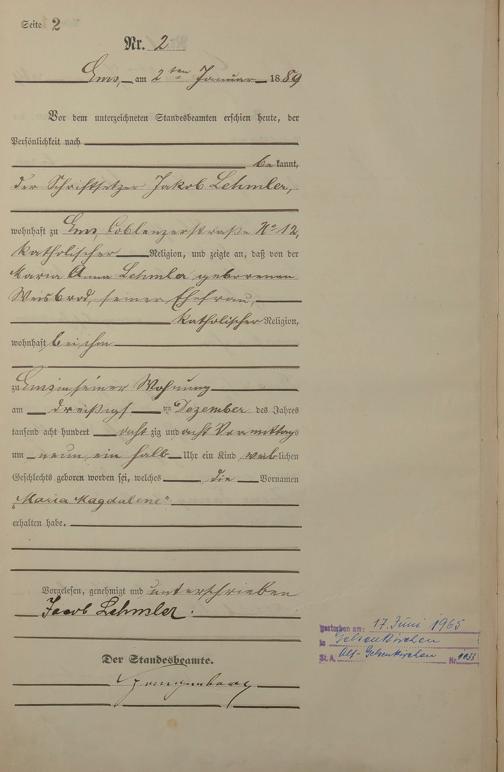 Seite 2
Nr. 2
Ems, am 2ten Januar 1889
Vor dem unterzeichneten Standesbeamten erschien heute, der
Persönlichkeit nach
bekannt,
der Schriftsetzer Jakob Lehmler,
wohnhaft zu Ems, Coblenzerstraße No 12,
katholischer Religion, und zeigte an, daß von der
Maria Anna Lehmler geborenen
Weisbrod, seiner Ehefrau,
katholischer Religion,
wohnhaft bei ihm
zu Ems in seiner Wohnung
am dreißigst en Dezember des Jahres
tausend acht hundert acht zig und acht Vormittags
um neun ein halb Uhr ein Kind weiblichen
Geschlechts geboren worden sei, welches die Vornamen
„Maria Magdalene"
erhalten habe.
Vorgelesen, genehmigt und unterschrieben
Jacob Lehmler.
Der Standesbeamte.
gestorben am: 17. Juni 1965
in Gelsenkirchen
St. A. Gelsenkirchen Nr.